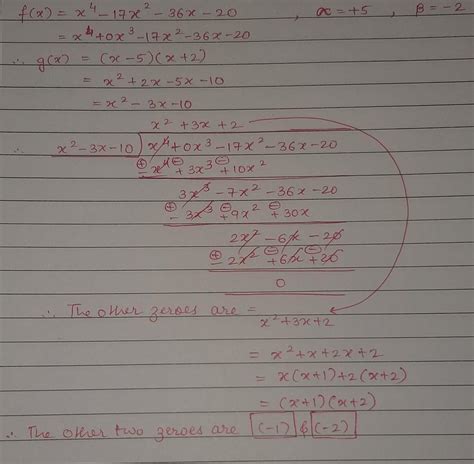 f(x) = x⁴ - 17x² - 36x - 20 , α = +5 , β = -2
= x⁴ + 0x³ - 17x² - 36x - 20
∴ g(x) = (x-5)(x+2)
= x² + 2x - 5x - 10
= x² - 3x - 10
x² + 3x + 2
∴ x² - 3x - 10 ) x⁴ + 0x³ - 17x² - 36x - 20
⊕ ⊖ ⊖
- x⁴ + 3x³ + 10x²
3x³ - 7x² - 36x - 20
⊕ ⊖ ⊕
- 3x³ + 9x² + 30x
2x² - 6x - 20
⊕ ⊖ ⊖
- 2x² + 6x + 20
0
∴ The other zeroes are =
x² + 3x + 2
= x² + x + 2x + 2
= x(x+1) + 2(x+2)
= (x+1)(x+2)
∴ The other two zeroes are (-1) & (-2)